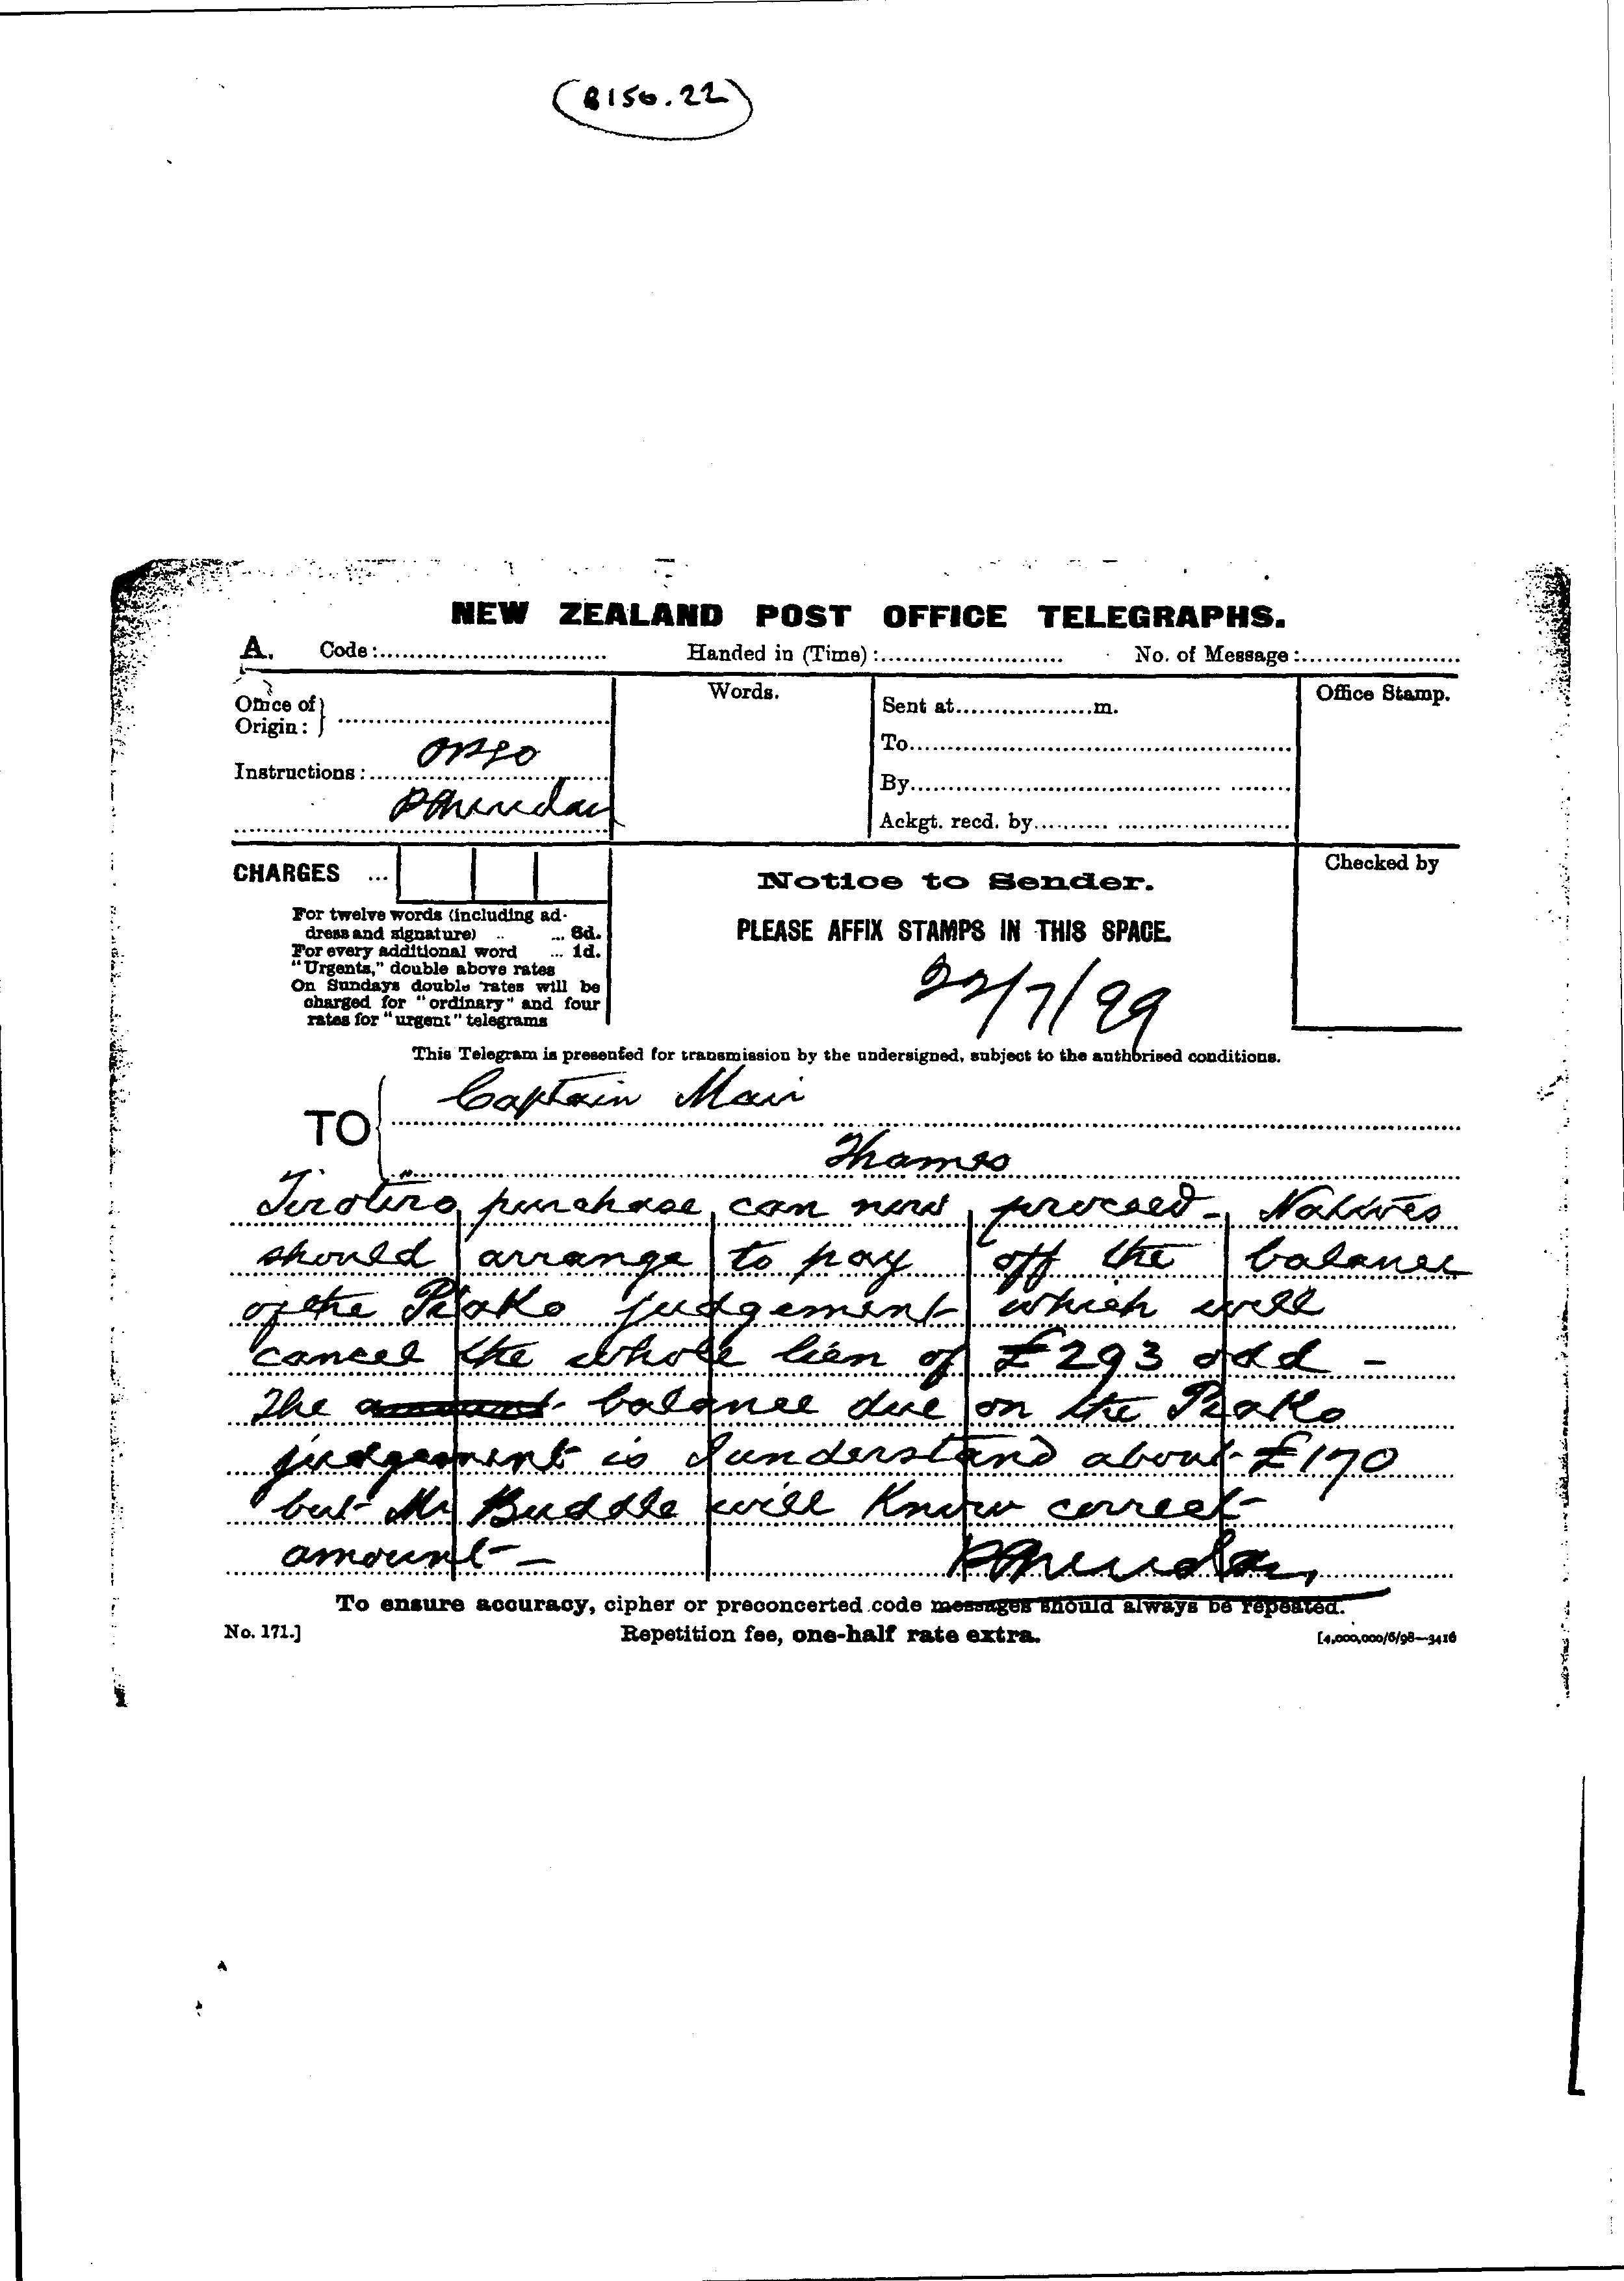 (B156.22)
NEW ZEALAND POST OFFICE TELEGRAPHS.
A. Code: Handed in (Time): No. of Message:
Office of Origin:
Words.
Sent at m.
Office Stamp.
To
Instructions:
By
Ackgt. recd. by
CHARGES ...
Notice to Sender.
Checked by
For twelve words (including ad-
dress and signature) .. ... 6d.
For every additional word ... 1d.
"Urgents," double above rates
On Sundays double rates will be
charged for "ordinary" and four
rates for "urgent" telegrams
PLEASE AFFIX STAMPS IN THIS SPACE.
22/7/99
This Telegram is presented for transmission by the undersigned, subject to the authorised conditions.
TO Captain Mair
Thames
Tirotiro purchase can now proceed - Natives
should arrange to pay off the balance
of the Piako judgement which will
cancel the whole lien of £293 odd -
The amount balance due on the Piako
judgement is I understand about £170
but Mr Buddle will know correct
amount -
To ensure accuracy, cipher or preconcerted code messages should always be repeated.
No. 171.] Repetition fee, one-half rate extra. [4,000,000/6/98—3416